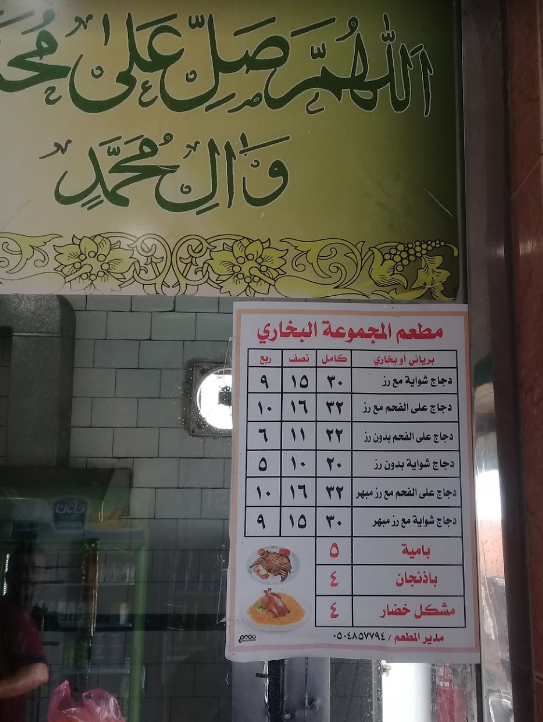 اَللّٰهُمَّ صَلِّ عَلىٰ
وَآلِ مُحَمَّدٍ
مطعم المجموعة البخاري
برياني أو بخاري كامل نصف ربع
دجاج شواية مع رز ٣٠ ١٥ ٩
دجاج على الفحم مع رز ٣٢ ١٦ ١٠
دجاج على الفحم بدون رز ٢٢ ١١ ٦
دجاج شواية بدون رز ٢٠ ١٠ ٥
دجاج على الفحم مع رز مبهر ٣٢ ١٦ ١٠
دجاج شواية مع رز مبهر ٣٠ ١٥ ٩
بامية ٥
باذنجان ٤
مشكل خضار ٤
مدير المطعم / ٠٥٠٤٨٥٧٧٩٤